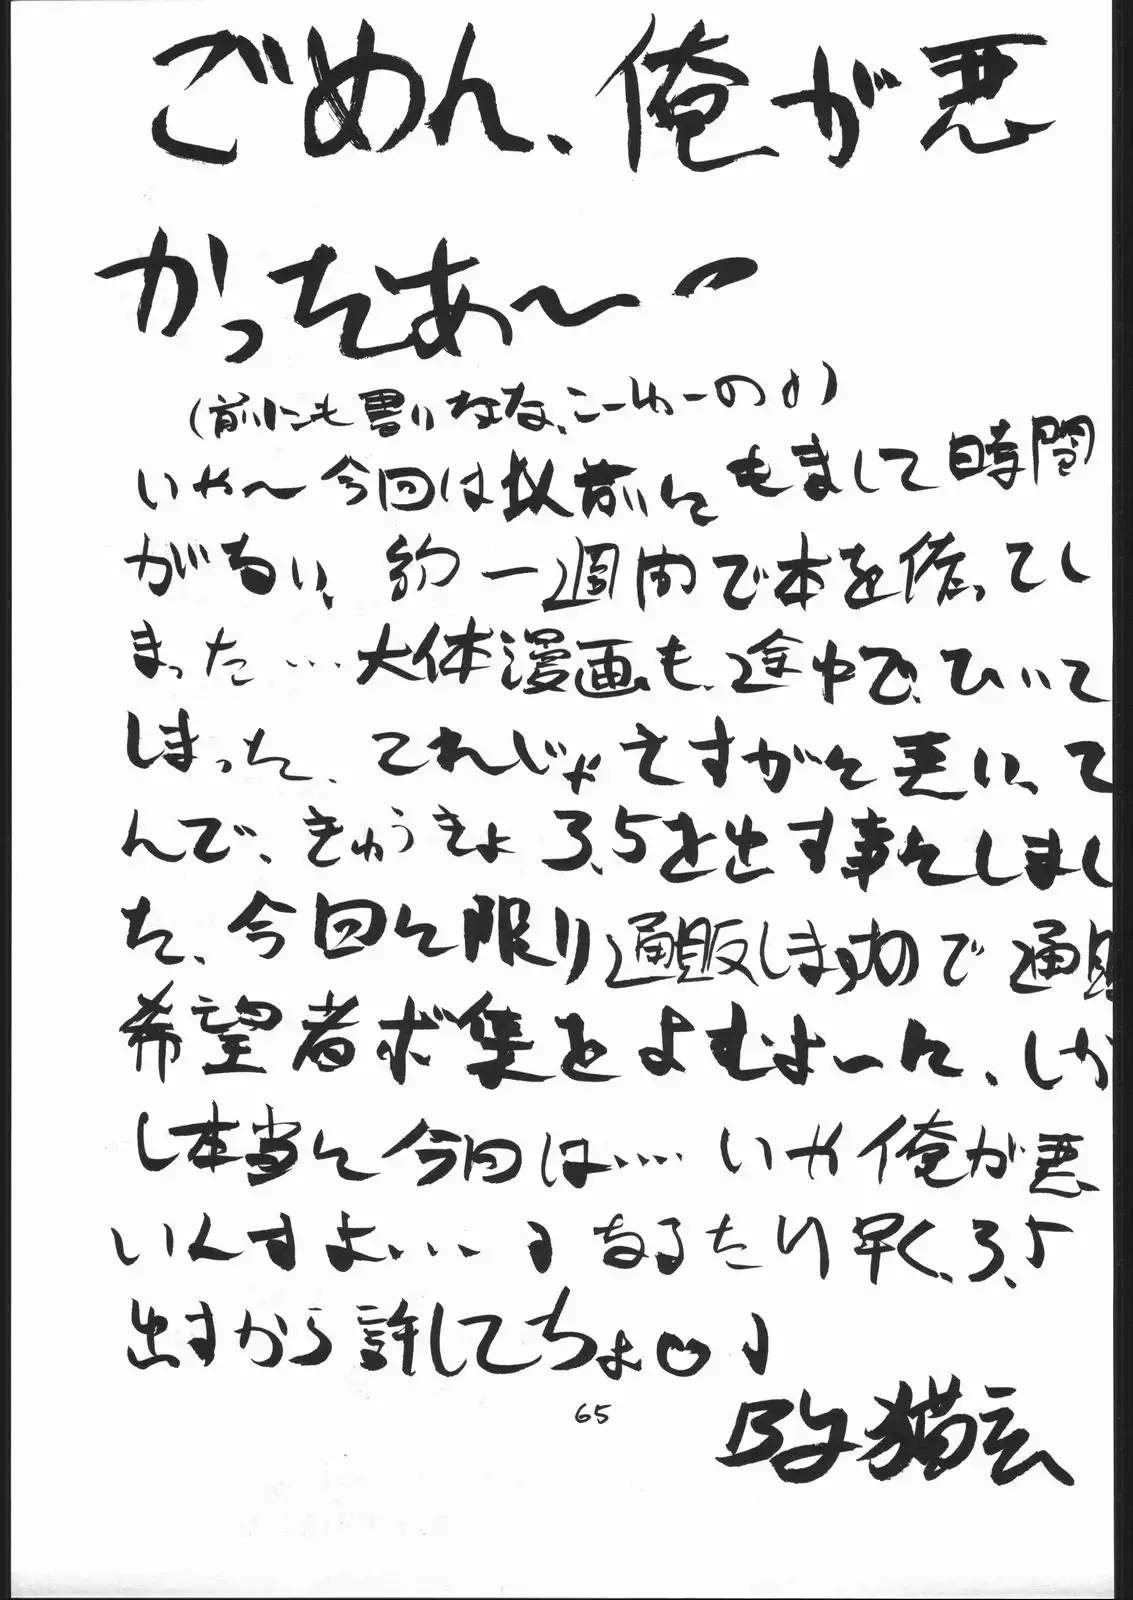 ごめん、俺が悪
かったあ〜
(前にも書いたな、こーゆーの♪)
いや〜今回は以前にもまして時間
がない、約一週間で本を作ってし
まった…大体漫画も途中で、ひいて
しまった、これじゃさすがに悪い、て
んで、きゅうきょ3.5を出す事にしまし
た、今回に限り通販しますので通販
希望者ボ集をよむよーに、しか
し本当に今回は…いや俺が悪
いんすよ…♪なるたけ早く、3.5
出すから許してちょ♡♪
65
By猫玄